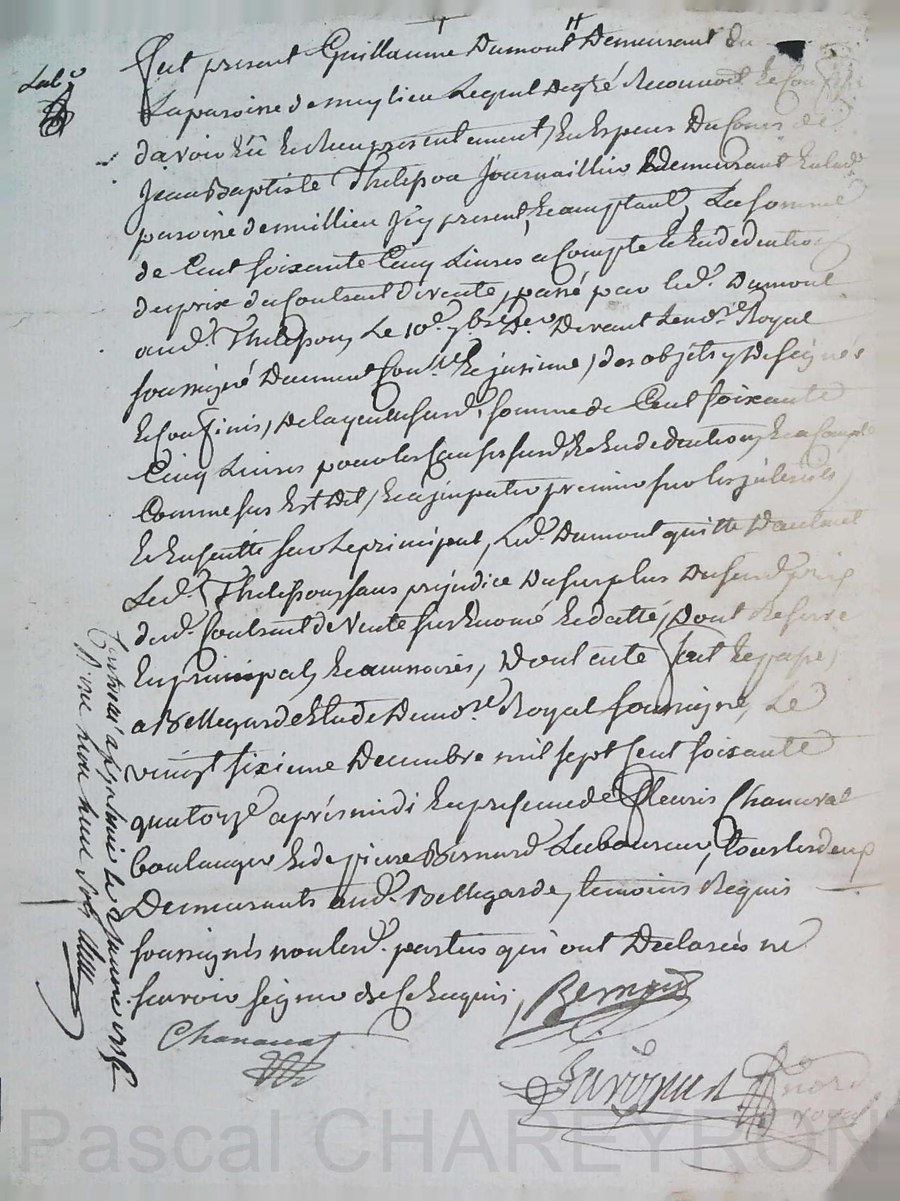 Fut present Guillaume Dumont Demeurant du
La paroisse de meylieu Lequel De gré Reconnoit Et Confesse
d'avoir Eû Et Receu presentement, En Especes Du Cours de
Jean Baptiste Thelisson Journaillier Demeurant En lad.
paroisse de meillieu Jcy present, Et acceptant, La somme
de Cent soixante Cinq Livres a Compte Et En deduction
du prix du Contract de vente, passé par led. Dumont
aud. Thelisson, Le 10e. 7bre Der. Devant Le nore. Royal
soussigné Duement Conllé. Et insinué, des objets y Designés
Et Confinés, De laquelle surd. somme de Cent soixante
Cinq Livres pour les Causes surd. Et En deduction, Et a Compte
Comme sus Est Dit, Et a jmputer premier sur les jnterests
Et Ensuitte sur Le principal, Led. Dumont quitte D'autant
Led. Thelisson sans prejudice Du surplus Du surd. prix
dud. Contract de vente sus Enomé Et datté, Dont Reserve
En principal, Et accessoires, Dont acte fait Et passé,
a Bellegarde Etude Du nore. Royal soussigné, Le
vingt sixieme Decembre mil sept Cent soixante
quatorze après midi En presence de Fleuris Chanavat
boulanger Et de pierre Bernard Laboureur, tous les deux
Demeurants aud. Bellegarde, temoins Requis
soussignés non lesd. parties qui ont Declarées ne
scavoir signer de ce Enquis,
Bernard
Chanavat
nore
royal
Controllé a St galmier Le
Reçu